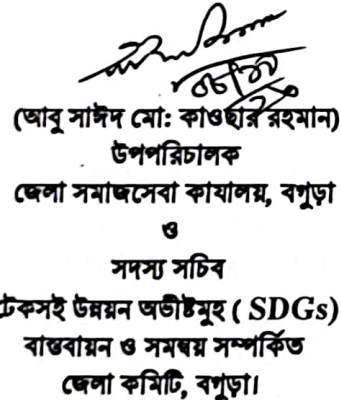 (আবু সাঈদ মো: কাওছার রহমান)
উপপরিচালক
জেলা সমাজসেবা কাযালয়, বগুড়া
ও
সদস্য সচিব
টেকসই উন্নয়ন অভীষ্টমুহ ( SDGs)
বাস্তবায়ন ও সমন্বয় সম্পর্কিত
জেলা কমিটি, বগুড়া।